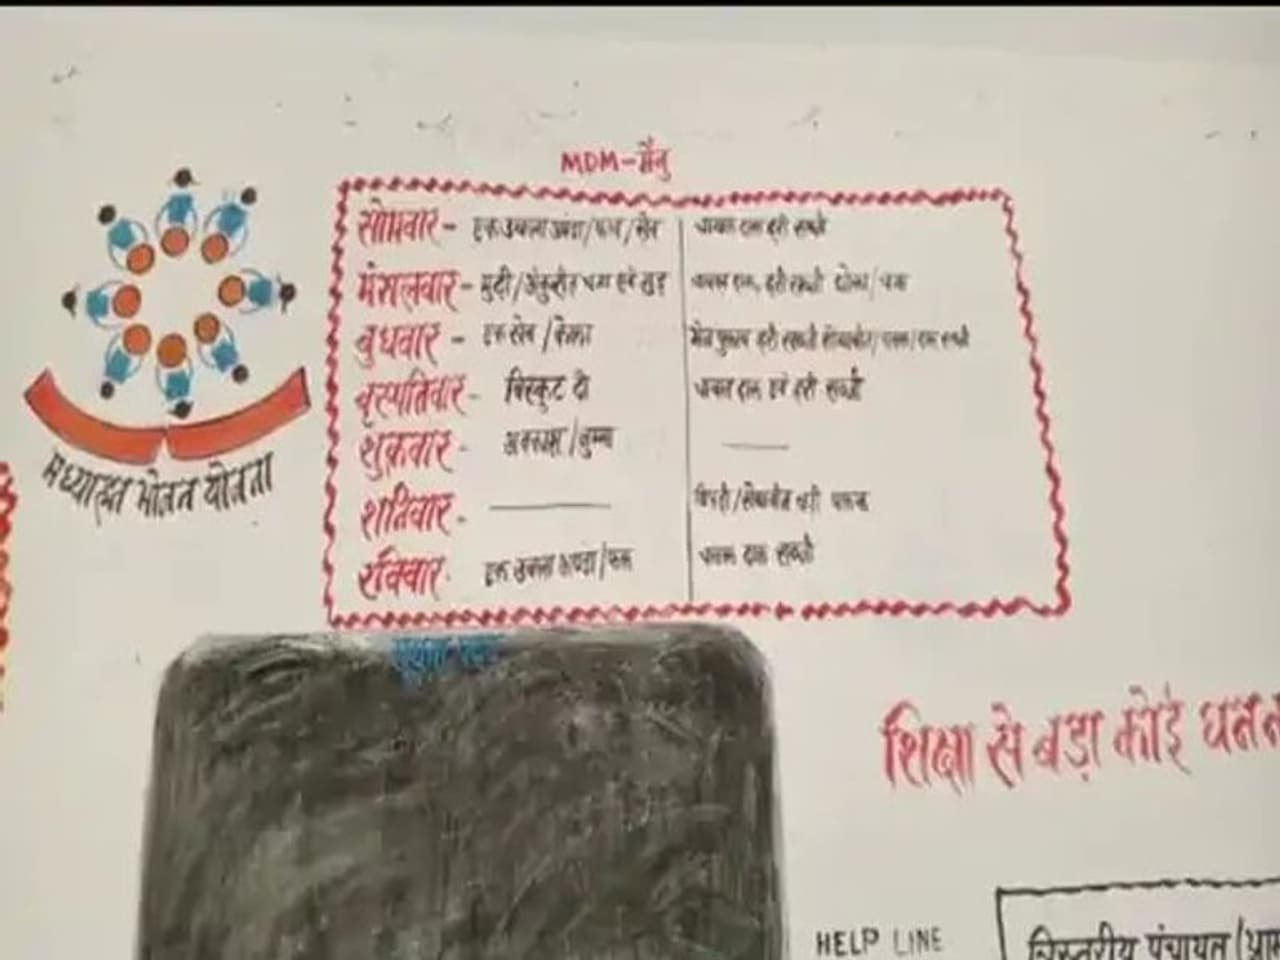 MDM-मैनु
सोमवार - एक उबला अंडा/फल/सेव चावल दाल हरी सब्जी
मंगलवार - मुढ़ी/अंकुरीत चना एवं गुड़ चावल दाल, हरी सब्जी
बुधवार - एक सेव/केला हरी सब्जी सोयाबीन
वृस्पतिवार - बिस्कुट दो चावल दाल एवं हरी सब्जी
शुक्रवार - अवकाश/जुम्मा
शनिवार -
रविवार - एक उबला अण्डा/फल चावल दाल सब्जी
मध्याह्न भोजन योजना
शिक्षा से बड़ा कोई धन न
HELP LINE
त्रिस्तरीय पंचायत (ग्राम